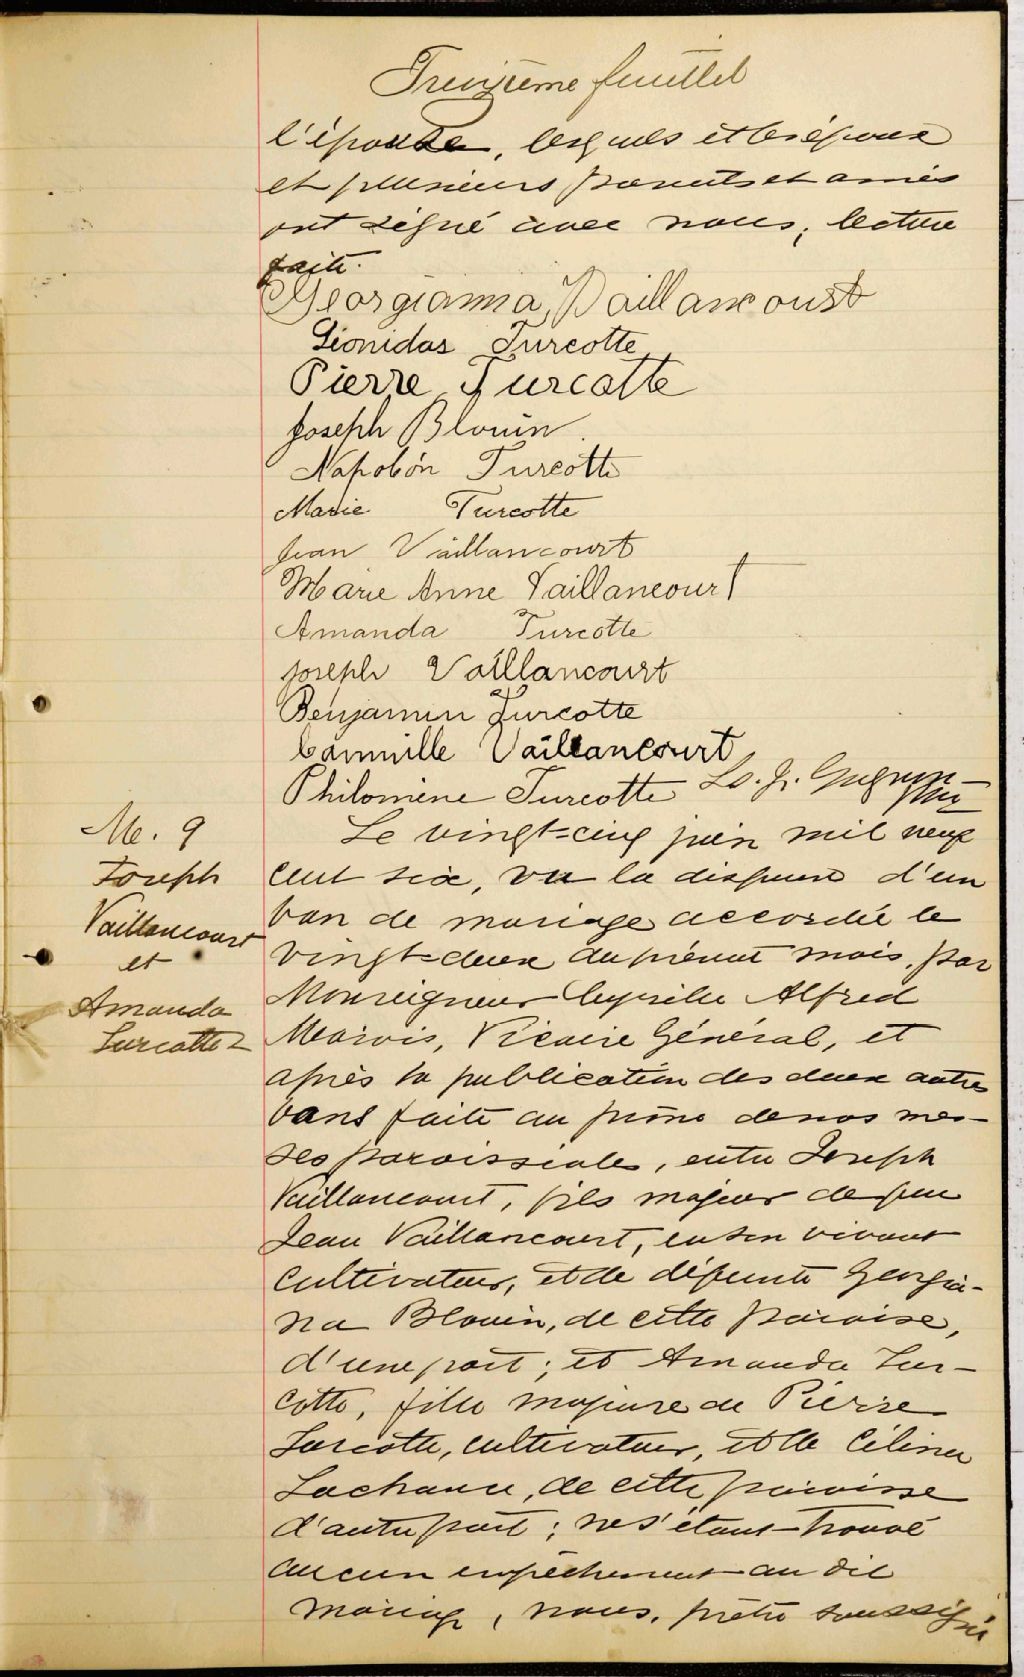 Treizième feuillet
l'épouse, lesquels et les époux
et plusieurs parents et amies
ont signé avec nous; lecture
faite.
Georgianna Vaillancourt
Léonidas Turcotte
Pierre Turcotte
Joseph Blouin.
Napoléon Turcotte
Marie Turcotte
Jean Vaillancourt
Marie Anne Vaillancourt
Amanda Turcotte
Joseph Vaillancourt
Benjamin Turcotte
Cammille Vaillancourt
Philomène Turcotte
M. 9
Joseph
Vaillancourt
et
Amanda
Turcotte
Le vingt-cinq juin mil neuf
cent six, vu la dispense d'un
ban de mariage accordée le
vingt-deux du présent mois, par
Monseigneur Cyprille Alfred
Marois, Vicaire Général, et
après la publication des deux autres
bans faite au prône de nos mes-
ses paroissiales, entre Joseph
Vaillancourt, fils majeur de feu
Jean Vaillancourt, en son vivant
cultivateur, et de défunte Georgia-
na Blouin, de cette paroisse,
d'une part; et Amanda Tur-
cotte, fille majeure de Pierre
Turcotte, cultivateur, et de Célina
Lachance, de cette paroisse
d'autre part; ne s'étant trouvé
aucun empêchement au dit
mariage, nous, prêtre soussigné